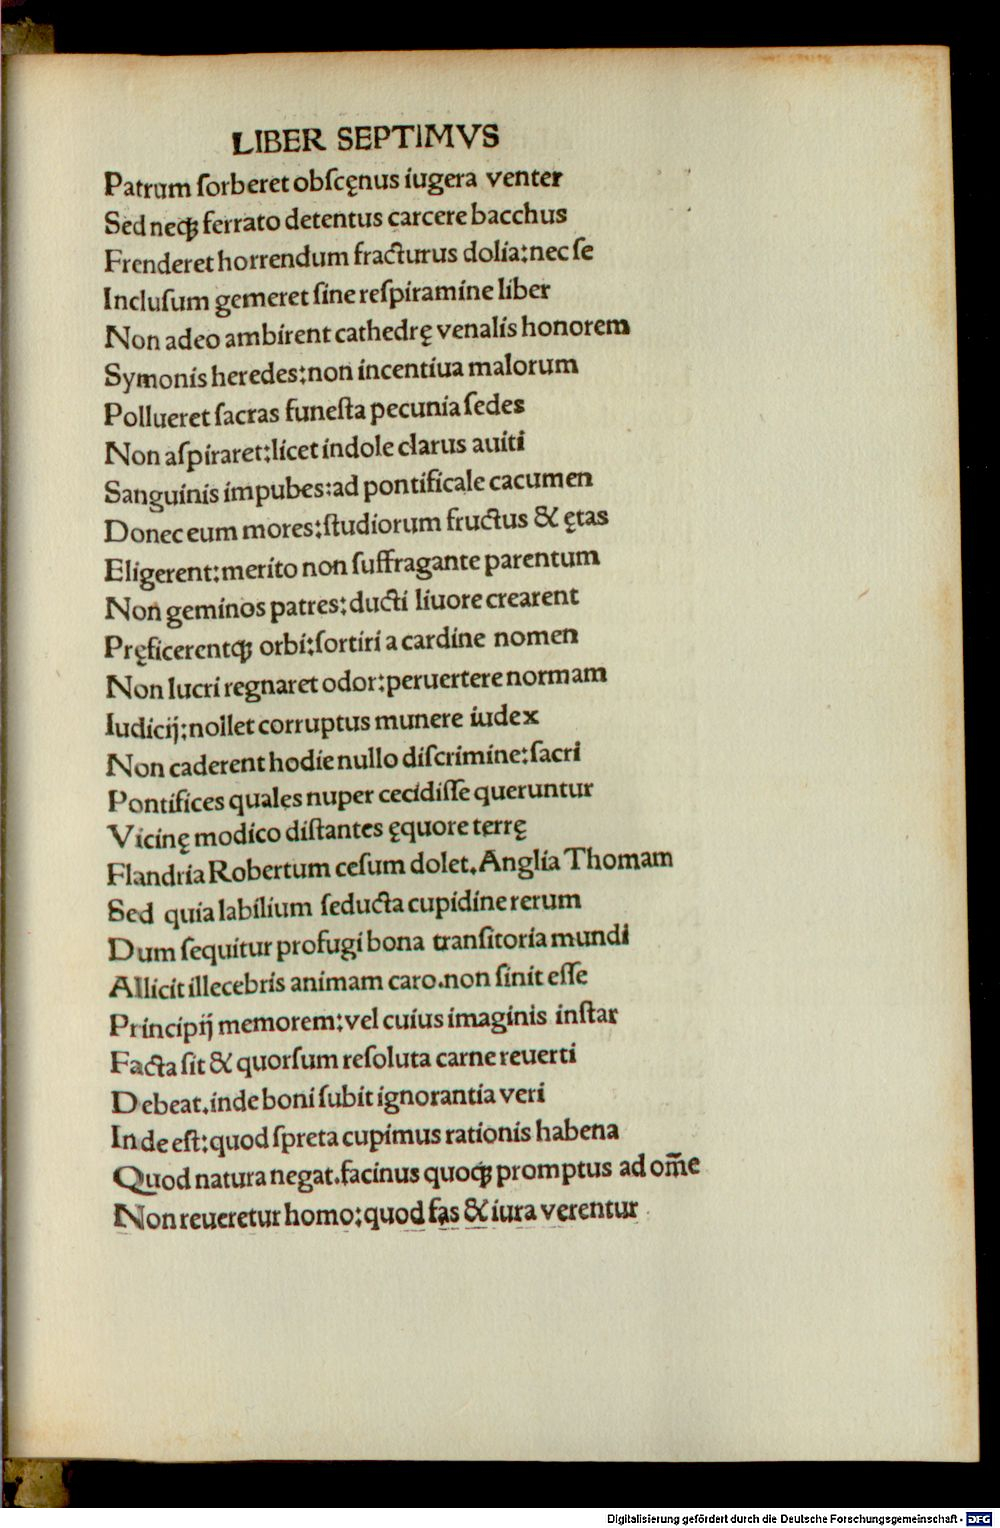 LIBER SEPTIMVS
Patrum ſorberet obſcęnus iugera venter
Sed neqꝫ ferrato detentus carcere bacchus
Frenderet horrendum fracturus dolia:nec ſe
Incluſum gemeret ſine reſpiramine liber
Non adeo ambirent cathedrę venalis honorem
Symonis heredes:non incentiua malorum
Pollueret ſacras funeſta pecunia ſedes
Non aſpiraret:licet indole clarus auiti
Sanguinis impubes:ad pontificale cacumen
Donec eum mores:ſtudiorum fructus & ętas
Eligerent:merito non ſuffragante parentum
Non geminos patres:ducti liuore crearent
Pręficerentqꝫ orbi:ſortiri a cardine nomen
Non lucri regnaret odor:peruertere normam
Iudicij:nollet corruptus munere iudex
Non caderent hodie nullo diſcrimine:ſacri
Pontifices quales nuper cecidiſſe queruntur
Vicinę modico diſtantes ęquore terrę
Flandria Robertum ceſum dolet.Anglia Thomam
Sed quia labilium ſeducta cupidine rerum
Dum ſequitur profugi bona tranſitoria mundi
Allicit illecebris animam caro.non ſinit eſſe
Principij memorem:vel cuius imaginis inſtar
Facta ſit & quorſum reſoluta carne reuerti
Debeat.inde boni ſubit ignorantia veri
Inde eſt:quod ſpreta cupimus rationis habena
Quod natura negat.facinus quoqꝫ promptus ad om̄e
Non reueretur homo:quod fas & iura verentur
Digitalisierung gefördert durch die Deutsche Forschungsgemeinschaft - DFG